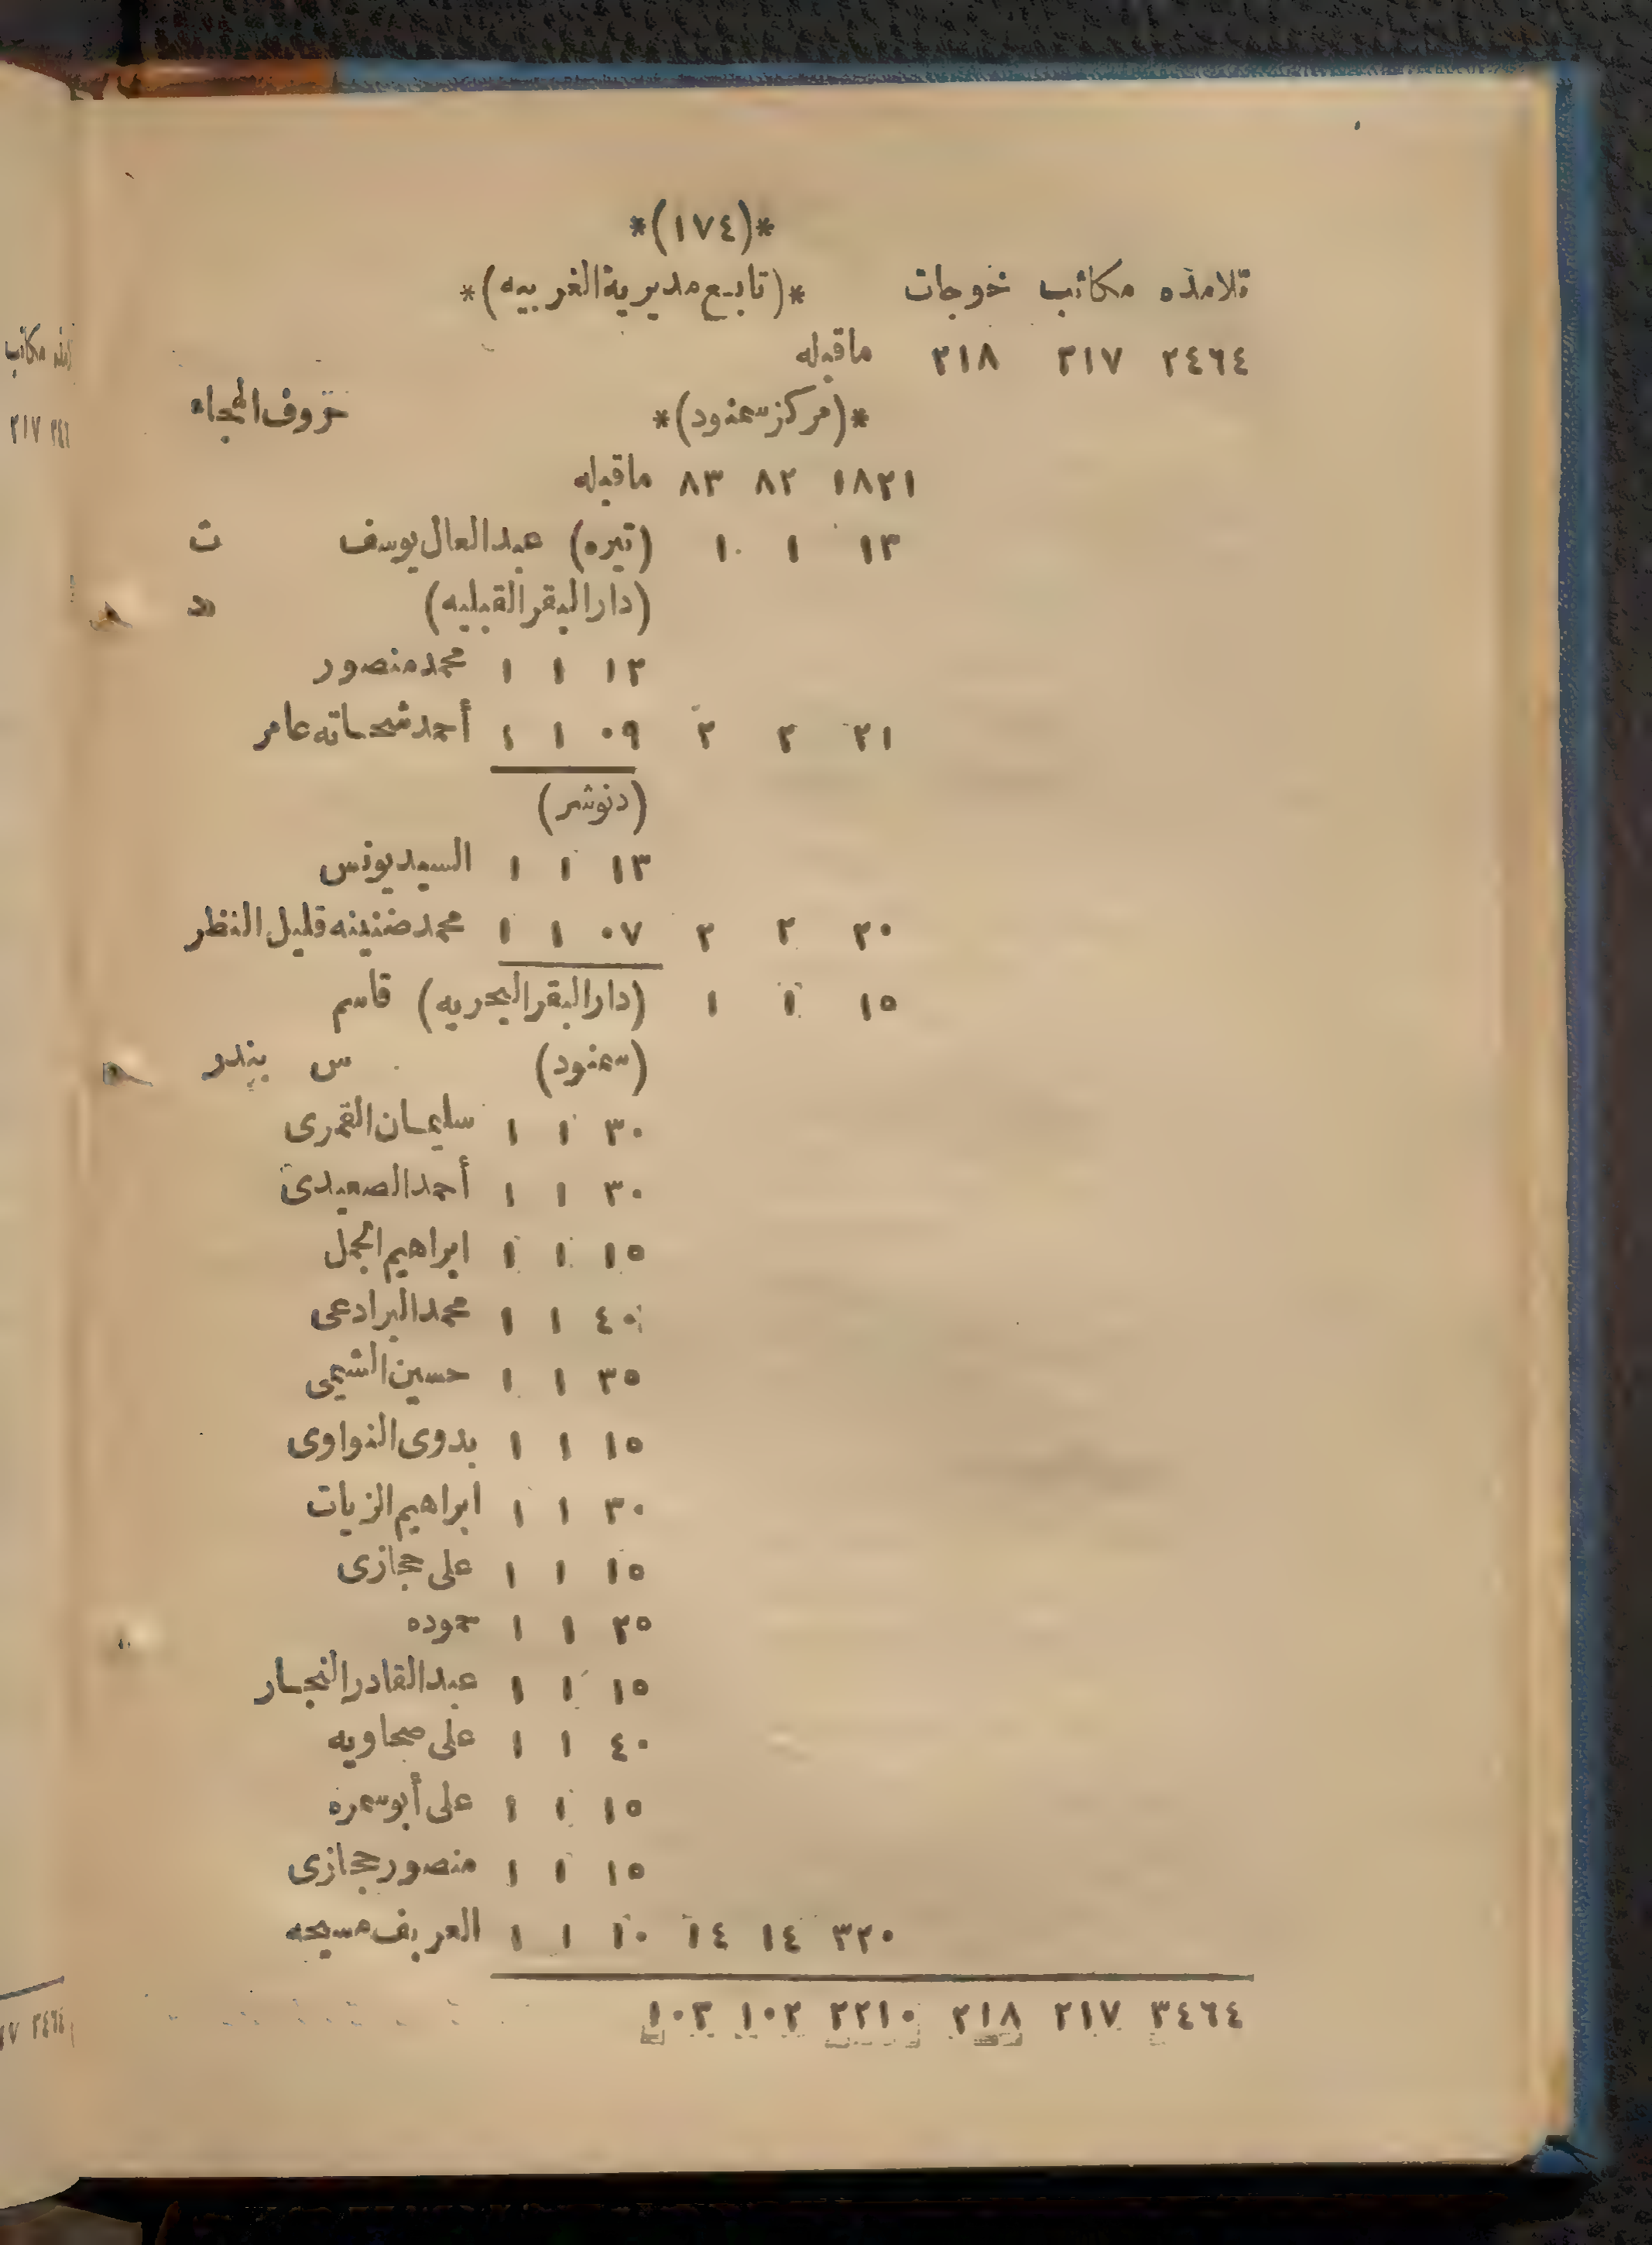 *(١٧٤)*
تلامذه مكاتب خوجات *(تابع مديرية الغربيه)*
٣٤٦٤ ٢١٧ ٢١٨ ماقبله
*(مركز سمنود)* حروف الهجاء
١٨٢١ ٨٢ ٨٣ ماقبله
١٣ ١ ١ (تيره) عبد العال يوسف ت
(دار البقر القبليه) د
١٢ ١ ١ محمد منصور
٢١ ٢ ٢ ٠٩ ١ ١ أحمد شحاته عامر
(دنوشر)
١٣ ١ ١ السيد يونس
٢٠ ٢ ٢ ٠٧ ١ ١ محمد ضنينه قليل النظر
١٥ ١ ١ (دار البقر البحريه) قاسم
(سمنود) س بندر
٣٠ ١ ١ سليمان القمرى
٣٠ ١ ١ أحمد الصعيدى
١٥ ١ ١ ابراهيم الجمل
٤٠ ١ ١ محمد البرادعى
٣٥ ١ ١ حسين الشيمى
١٥ ١ ١ بدوى النواوى
٣٠ ١ ١ ابراهيم الزيات
١٥ ١ ١ على حجازى
٢٥ ١ ١ حموده
١٥ ١ ١ عبد القادر النجار
٤٠ ١ ١ على
١٥ ١ ١ على أبو سمره
١٥ ١ ١ منصور حجازى
٣٢٠ ١٤ ١٤ ١٠ ١ ١ العريف مسيحه
٣٤٦٤ ٢١٧ ٢١٨ ٢٢١٠ ١٠٢ ١٠٣